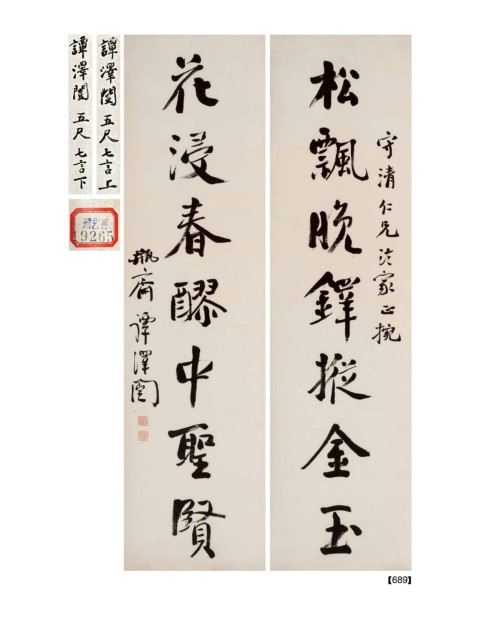 守清仁兄法家正捥
松飄晚鐸摐金玉
花浸春醪中聖賢
瓶齋譚澤闓
譚澤闓 五尺七言上
譚澤闓 五尺七言下
9265
【689】